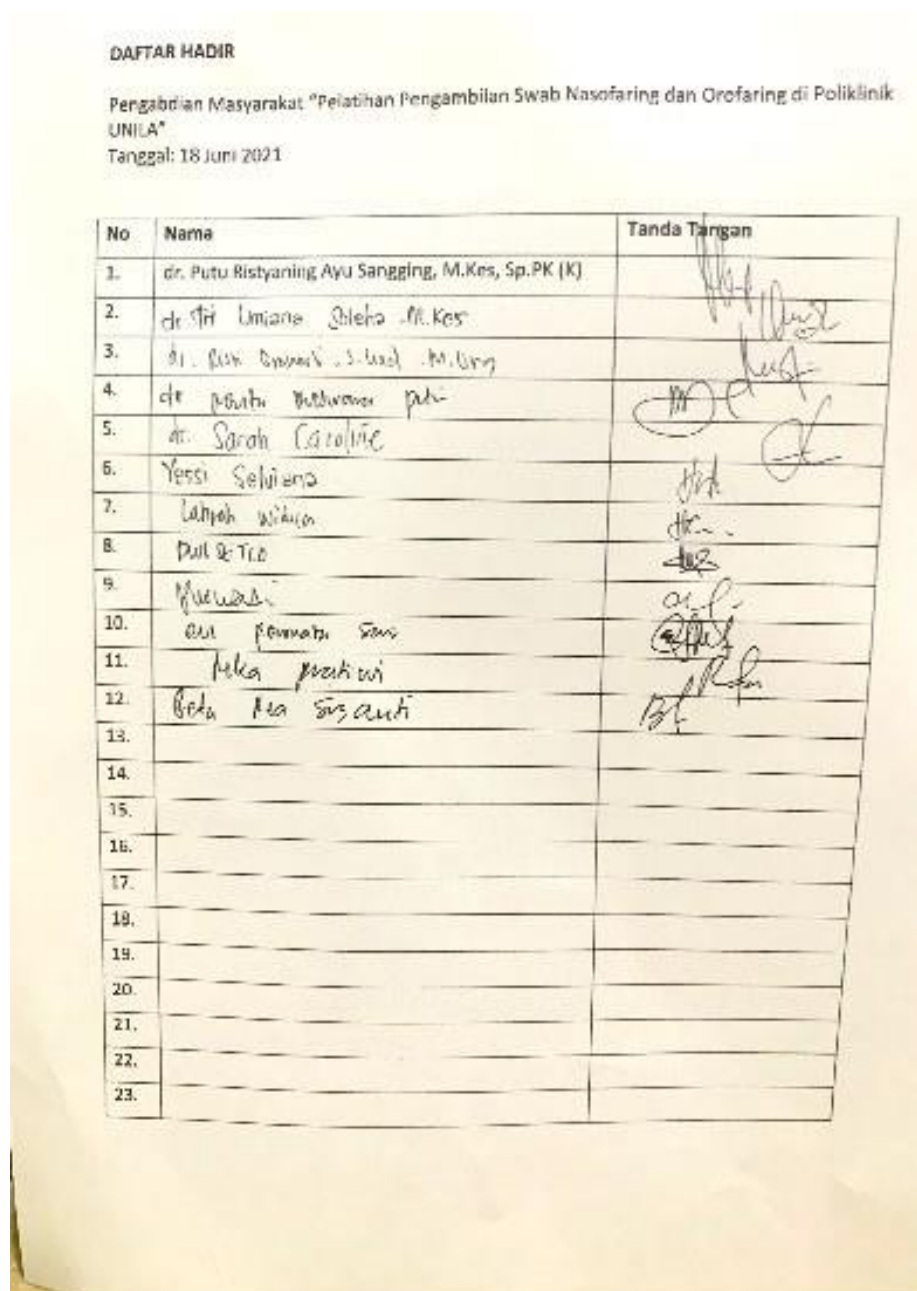 DAFTAR HADIR
Pengabdian Masyarakat "Pelatihan Pengambilan Swab Nasofaring dan Orofaring di Poliklinik
UNILA"
Tanggal: 18 Juni 2021
No Nama Tanda Tangan
1. dr. Putu Ristyaning Ayu Sangging, M.Kes, Sp.PK (K)
2. dr. Tri Umiana Soleha .M.Kes
3. dr.
4. dr
5. dr. Sarah Caroline
6. Yessi Selviana
7.
8.
9.
10. permata sari
11. pratiwi
12. Susanti
13.
14.
15.
16.
17.
18.
19.
20.
21.
22.
23.